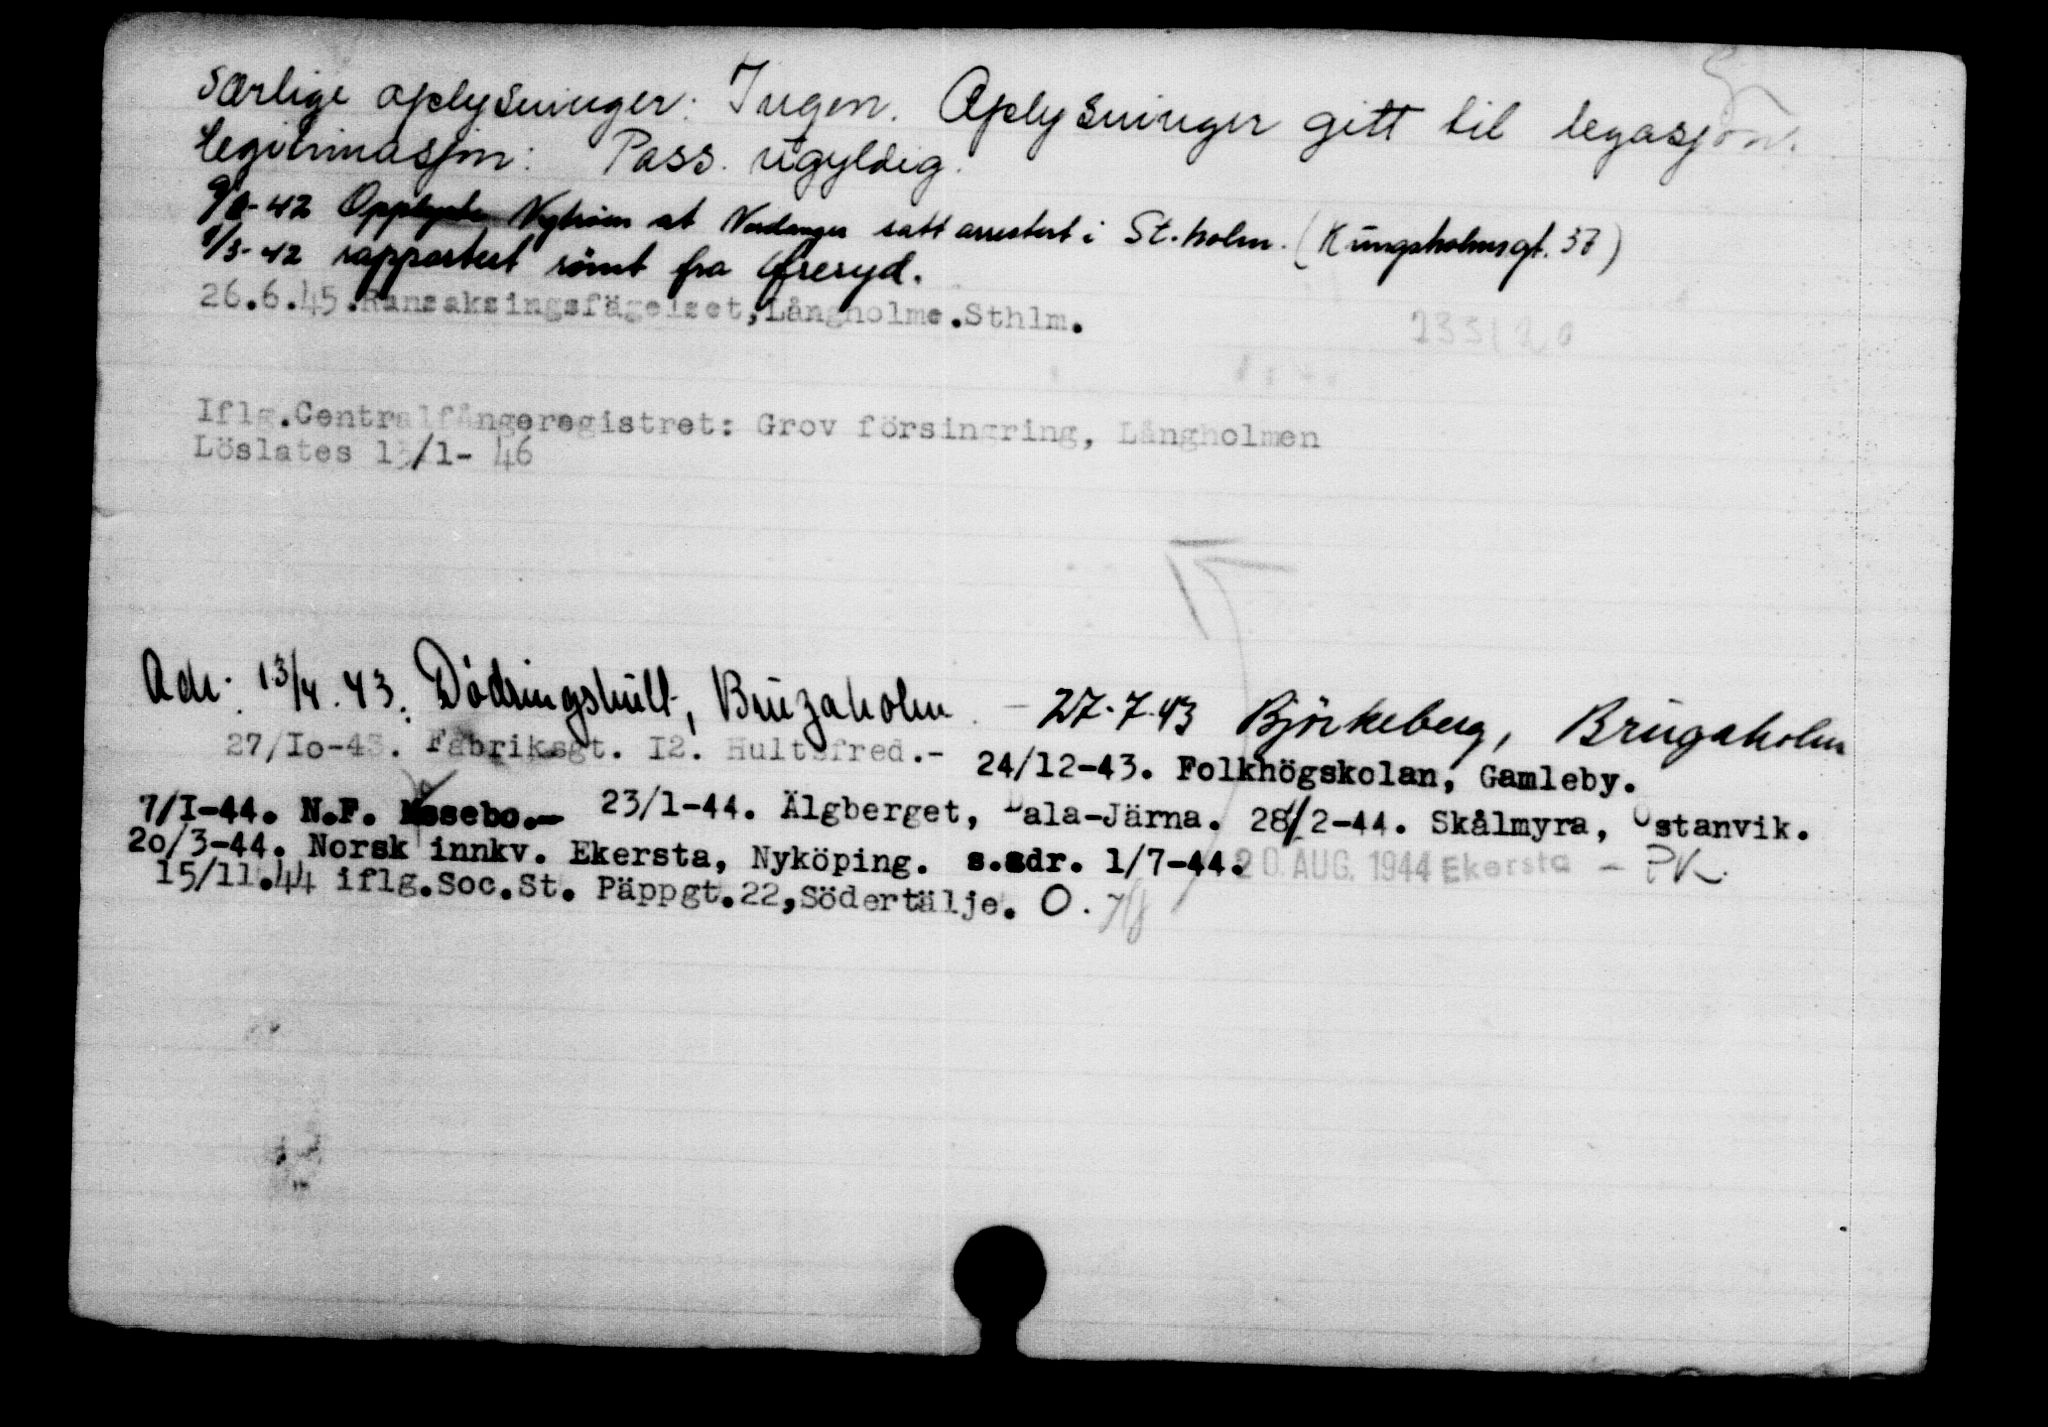 Særlige oplysninger: Ingen. Oplysninger gitt til legasjon.
legitimasjon: Pass. ugyldig.
Opplyste Nyström at Nordanger satt arrestert i St.holm. (Kungsholmsgt. 37)
1/3-42 rapportert römt fra Öreryd.
26.6.45.Ransakingsfägelset,Långholme.Sthlm.
233120
Iflg.Centralfångeregistret: Grov försingring, Långholmen
Löslates 13/1- 46
Adr. 13/4.43. Dödringshult, Bruzaholm - 27.7.43 Björkeberg, Brugaholm
27/Io-43. Fabriksgt. I2. Hultsfred.- 24/12-43. Folkhögskolan, Gamleby.
7/I-44. N.F. Mosebo.- 23/1-44. Älgberget, Dala-Järna. 28/2-44. Skålmyra, Östanvik.
2o/3-44. Norsk innkv. Ekersta, Nyköping. s.adr. 1/7-44. 20. AUG. 1944 Ekersta - PK.
15/11.44 iflg.Soc.St. Päppgt.22,Södertälje. O.